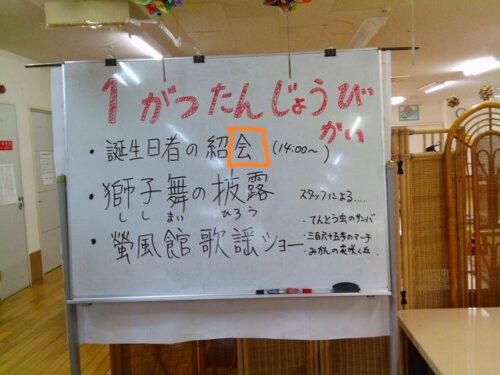 1がつたんじょうび
かい
・誕生日者の紹会 (14:00~)
・獅子舞の披露
ししまい ひろう
・螢風館歌謡ショー
スタッフによる....
・てんとう虫のサンバ
・三百六十五歩のマーチ
・みかんの花咲く丘